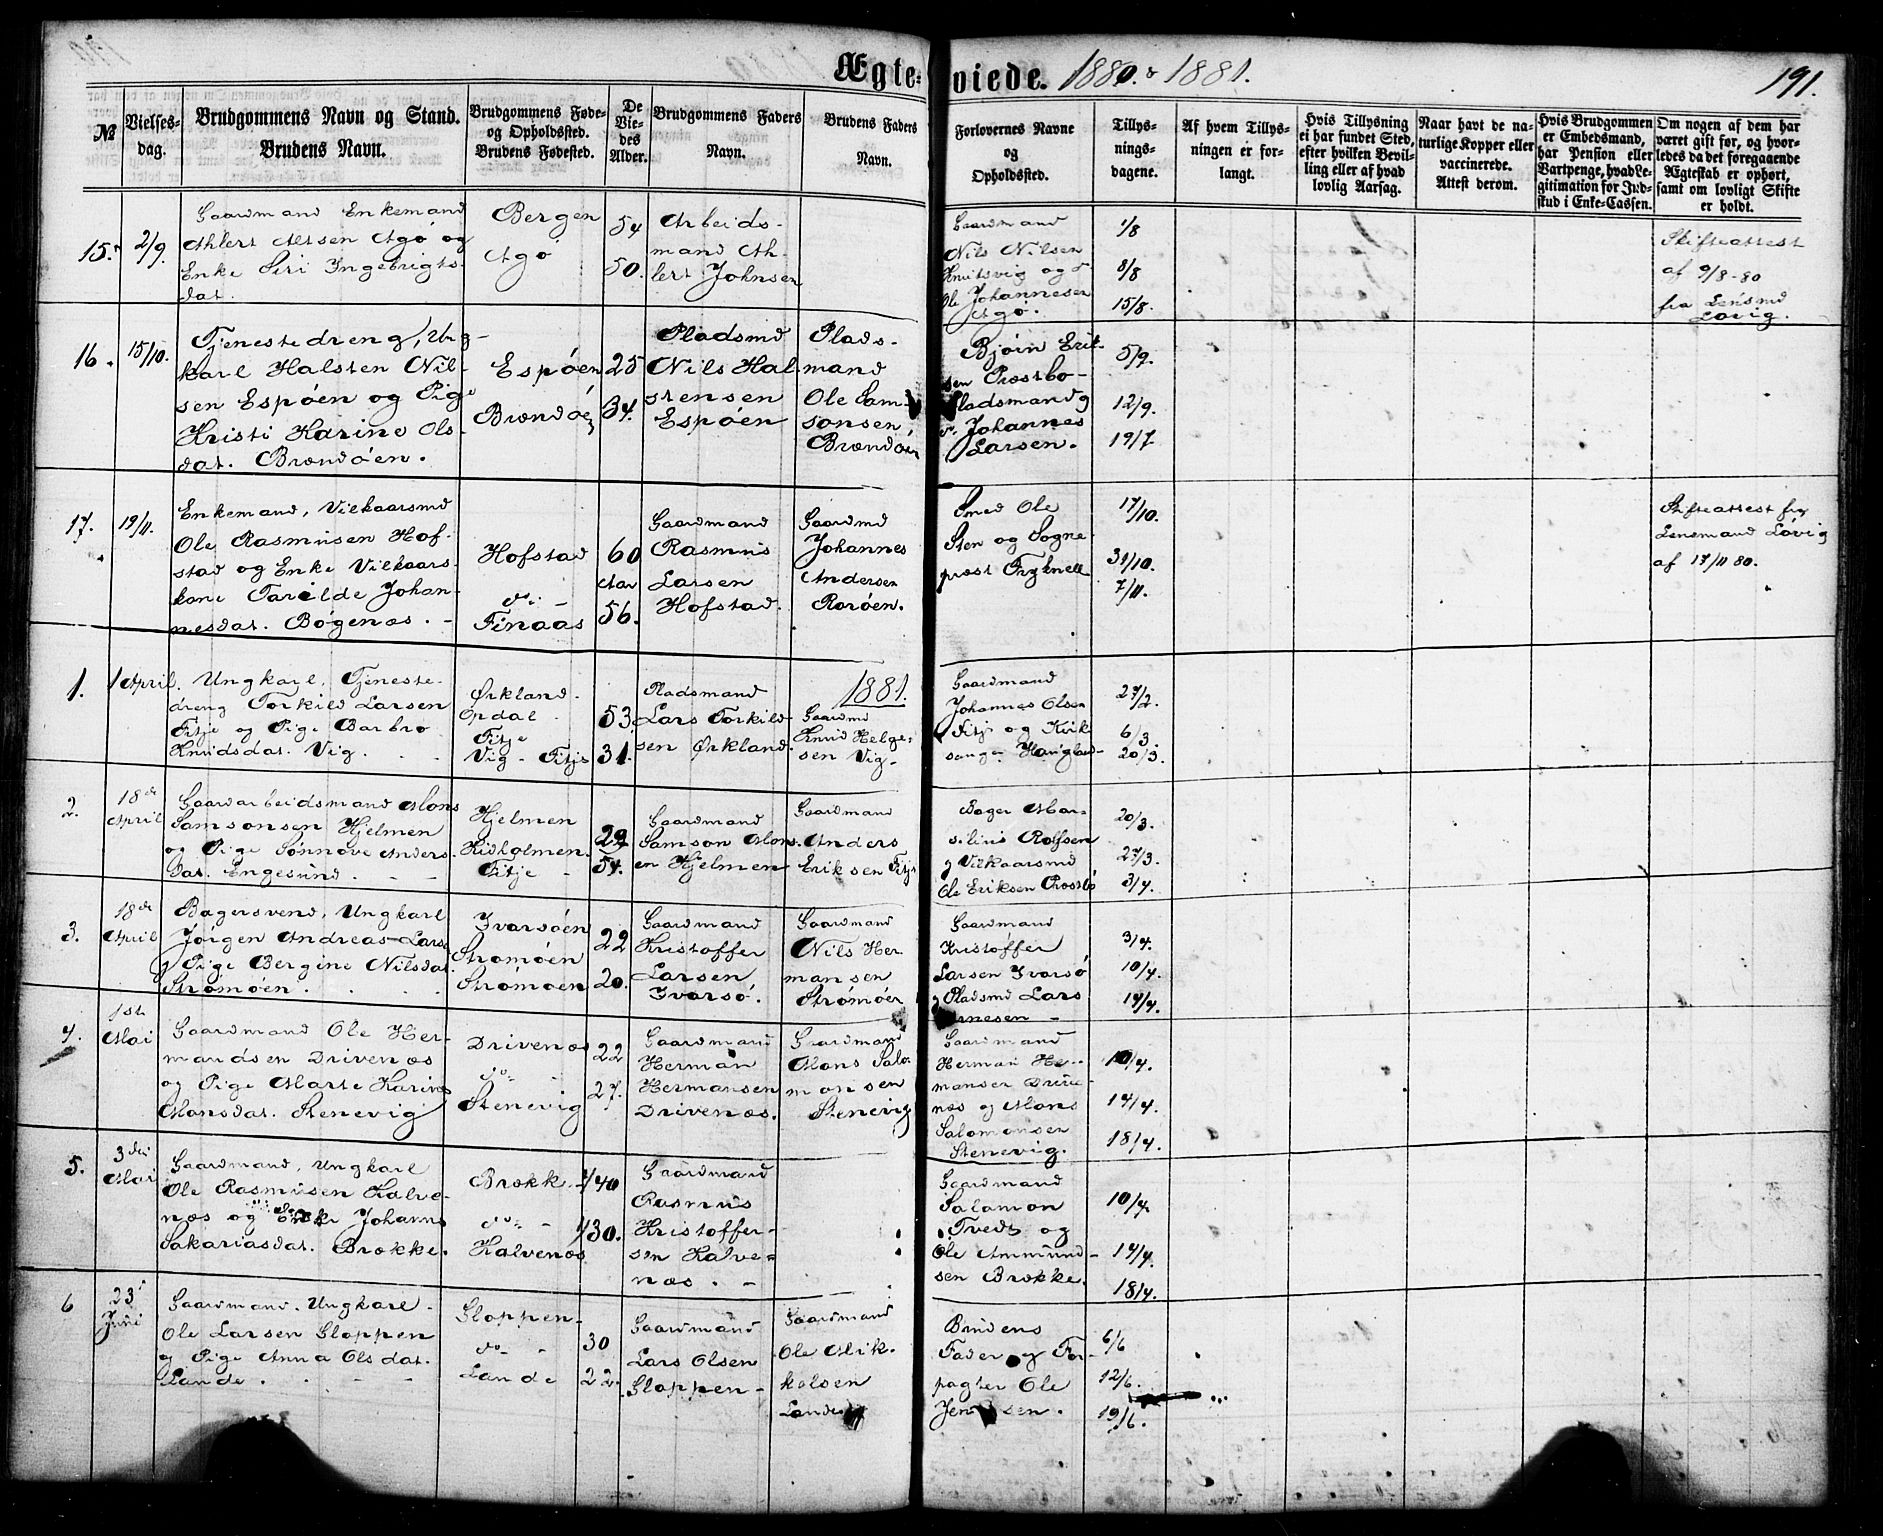 Ægte-viede. 1880 & 1881. 191.
№
Vielses-dag.
Brudgommens Navn og Stand.
Brudens Navn.
Brudgommens Føde- og Opholdssted.
Brudens Fødested.
De Vie-des Alder.
Brudgommens Faders Navn.
Brudens Faders Navn.
Forlovernes Navne og Opholdssted.
Tillys-nings-dagene.
Af hvem Tillys-ningen er for-langt.
Hvis Tillysning ei har fundet Sted, efter hvilken Bevil-ling eller af hvad lovlig Aarsag.
Naar havt de na-turlige Kopper eller vaccinerede. Attest derom.
Hvis Brudgommen er Embedsmand, har Pension eller Vartpenge, hvad Le-gitimation for Ind-skud i Enke-Cassen.
Om nogen af dem har været gift før, og hvor-ledes da det foregaaende Ægteskab er ophørt, samt om lovligt Skifte er holdt.
15. 2/9
Gaardmand Enkemand
Ahlert Altsen Agø og
Enke Siri Ingebrigts-
dat.
Bergen
Agø
54
50.
Arbeids-
mand Ah-
lert Johnsen
Gaardmand
Nils Nilsen
Knutsvig og
Ole Johannesen
Agø.
1/8
8/8
15/8.
Skifteattest
af 9/8-80
fra Lensmd
Løvig.
16. 15/10.
Tjenestedreng, Ung-
karl Halsten Nil-
sen Espøen og Pige
Kristi Karine Ols-
dat. Brændøen.
Espøen
Brændøen
25
34.
Pladsmd
Nils Hal-
stensen
Espøen
Plads-
mand
Ole Sam-
sonsen
Brændøen
Bjøin Erik-
sen Præstbo-
Pladsmand og
do. Johannes
Larsen.
5/9.
12/9.
19/7.
17. 19/11.
Enkemand, Vilkaarsmd
Ole Rasmusen Hof-
stad og Enke Vilkaars-
kone Tarilde Johan-
nesdat. Bøgenæs.
Hofstad
do. -
Finaas
60
Aar
56.
Gaardmand
Rasmus
Larsen
Hofstad.
Gaardmd
Johannes
Andersen
Rorøen.
Smed Ole
Sten og Sogne-
præst Tryknell
17/10.
31/10.
7/11.
Skifteattest fra
Lensmand Løvig
af 17/11 80.
1881.
1. 1 April.
Ungkarl, Tjeneste-
dreng Torkild Larsen
Fitje og Pige Barbro
Knudsdat. Vig.
Ørkland.
Opdal.
Fitje
Vig - Fitje
53.
31.
Pladsmand
Lars Torkild-
sen Ørkland.
Gaardmd
Knud Helge-
sen Vig.
Gaardmand
Johannes Olsen
Fitje og Kirke
sanger Haugland-
27/2.
6/3
20/3.
2. 18de April
Gaardarbeidsmand Mons
Samsonsen Hjelmen
og Pige Sønnove Anders-
dat. Engesund.
Hjelmen
Hidholmen.
Fitje -
54.
Gaardmand
Samson Mons-
en Hjelmen
Gaardmand
Anders
Eriksen Fitje
Bager Mar-
silius Rolfsen
og Vilkaarsmd
Ole Eriksen Præstbø
20/3.
27/3.
3/4.
3. 18de April
Bagersvend, Ungkarl
Jørgen Andreas Larse
Pige Bergine Nilsdat.
Strømøen.
Ivarsøen
Strømøen
Strømøen
22
20.
Gaardmand
Kristoffer
Larsen
Ivarsø.
Gaardmand
Nils Her
mansen
Strømøen
Gaardmand
Kristoffer
Larsen Ivarsø
og Pladsmd Lars
Arnesen -
3/4.
10/4.
14/4.
4. 1st Mai
Gaardmand Ole Her-
mandsen Drivenæs
og Pige Marte Karine
Monsdat. Stenevig
Drivenæs
do. -
Stenevig
22
27.
Gaardmand
Herman
Hermansen
Drivenæs.
Gaardmand
Mons Salo-
monsen
Stenevig
Gaardmand
Herman Her-
mansen Drive-
næs og Mons
Salomonsen
Stenevig.
10/4.
14/4.
18/4.
5. 3die Mai
Gaardmand, Ungkarl
Ole Rasmusen Kalve-
næs og Enke Johanne
Sakariasdat. Brække.
Brækk-
do. -
Kalvenæs
40
30.
Gaardmand
Rasmus
Kristoffer-
sen Kalve-
næs. -
Gaardmand
Salamon
Tvedt og
Ole Ammund-
sen Brække.
10/4.
14/4.
18/4.
6 23 Juni
Gaardmand. Ungkarl.
Ole Larsen Gloppen
og Pige Anna Olsdat.
Lande.
Gloppen-
do. -
Lande
30
22.
Gaardmand
Lars Olsen
Gloppen -
Gaardmand
Ole Mik-
kelsen
Lande
Brudens
Fader og For-
pagter Ole
Jensen.
6/6
12/6.
19/6.